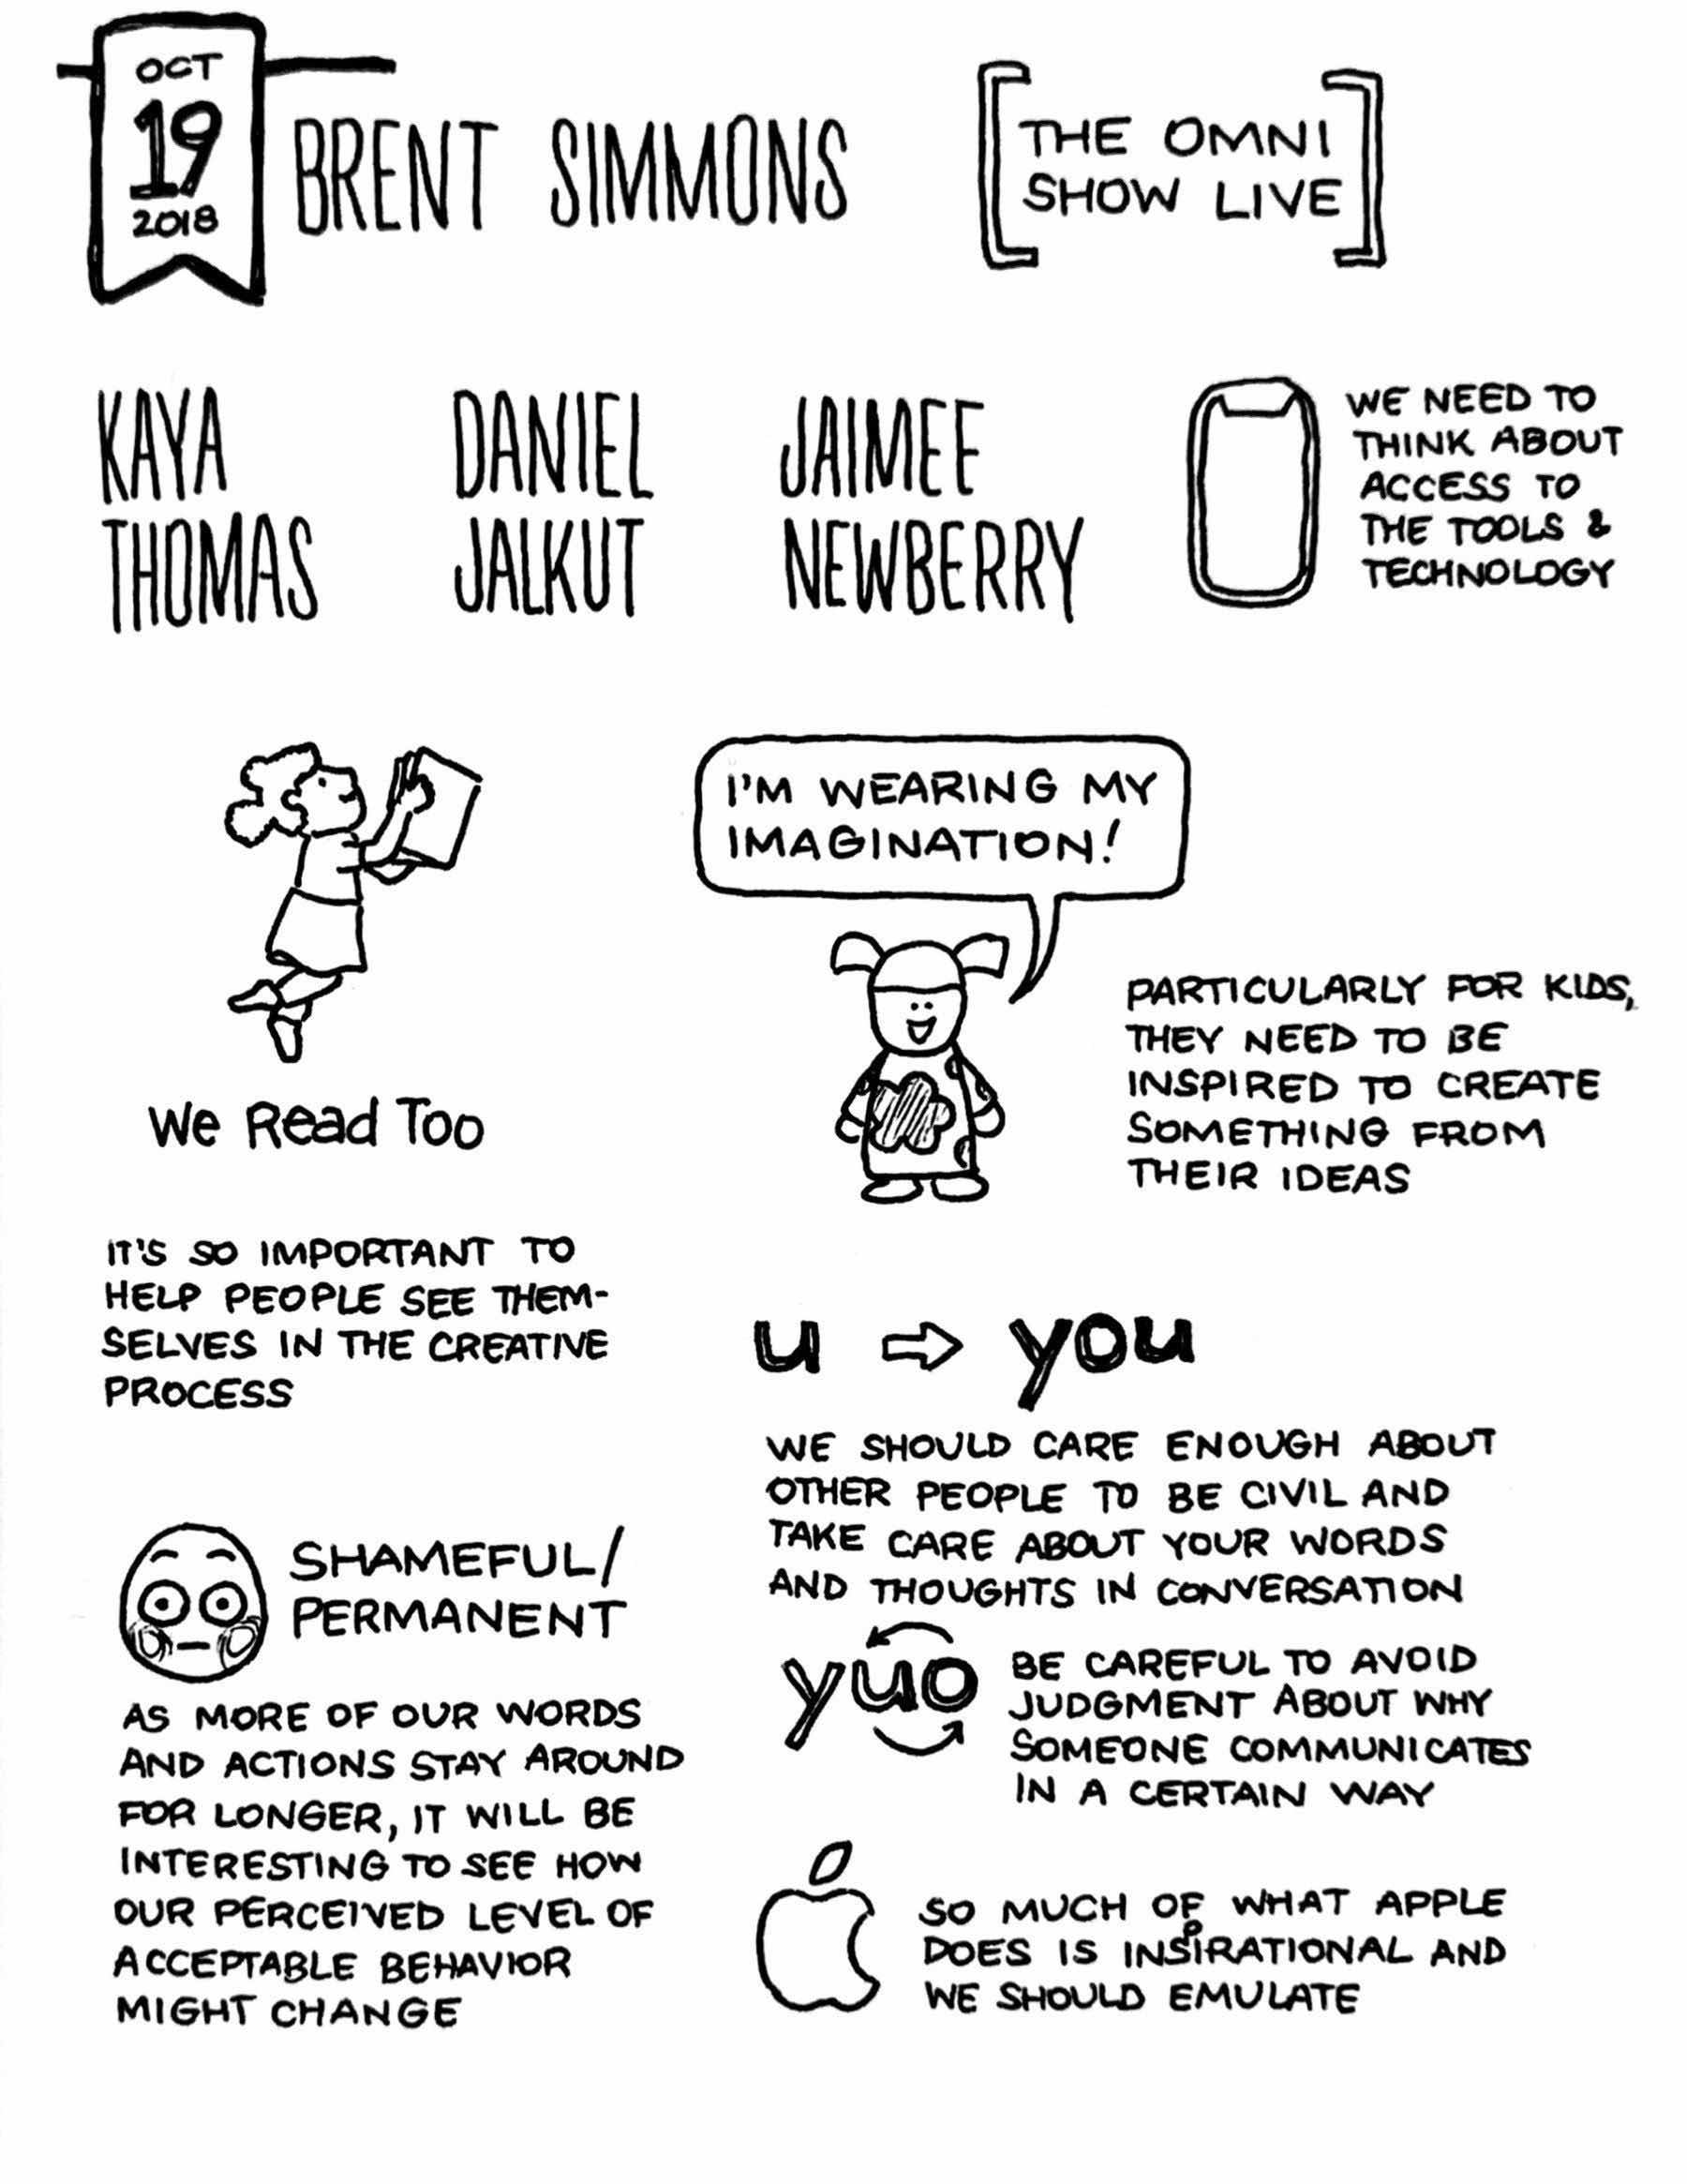 OCT
19
2018
BRENT SIMMONS
THE OMNI
SHOW LIVE
KAYA
THOMAS
DANIEL
JALKUT
JAIMEE
NEWBERRY
WE NEED TO
THINK ABOUT
ACCESS TO
THE TOOLS &
TECHNOLOGY
We Read Too
I'M WEARING MY
IMAGINATION!
PARTICULARLY FOR KIDS,
THEY NEED TO BE
INSPIRED TO CREATE
SOMETHING FROM
THEIR IDEAS
IT'S SO IMPORTANT TO
HELP PEOPLE SEE THEM-
SELVES IN THE CREATIVE
PROCESS
u ⇨ you
WE SHOULD CARE ENOUGH ABOUT
OTHER PEOPLE TO BE CIVIL AND
TAKE CARE ABOUT YOUR WORDS
AND THOUGHTS IN CONVERSATION
SHAMEFUL/
PERMANENT
AS MORE OF OUR WORDS
AND ACTIONS STAY AROUND
FOR LONGER, IT WILL BE
INTERESTING TO SEE HOW
OUR PERCEIVED LEVEL OF
ACCEPTABLE BEHAVIOR
MIGHT CHANGE
yuo
BE CAREFUL TO AVOID
JUDGMENT ABOUT WHY
SOMEONE COMMUNICATES
IN A CERTAIN WAY
SO MUCH OF WHAT APPLE
DOES IS INSPIRATIONAL AND
WE SHOULD EMULATE